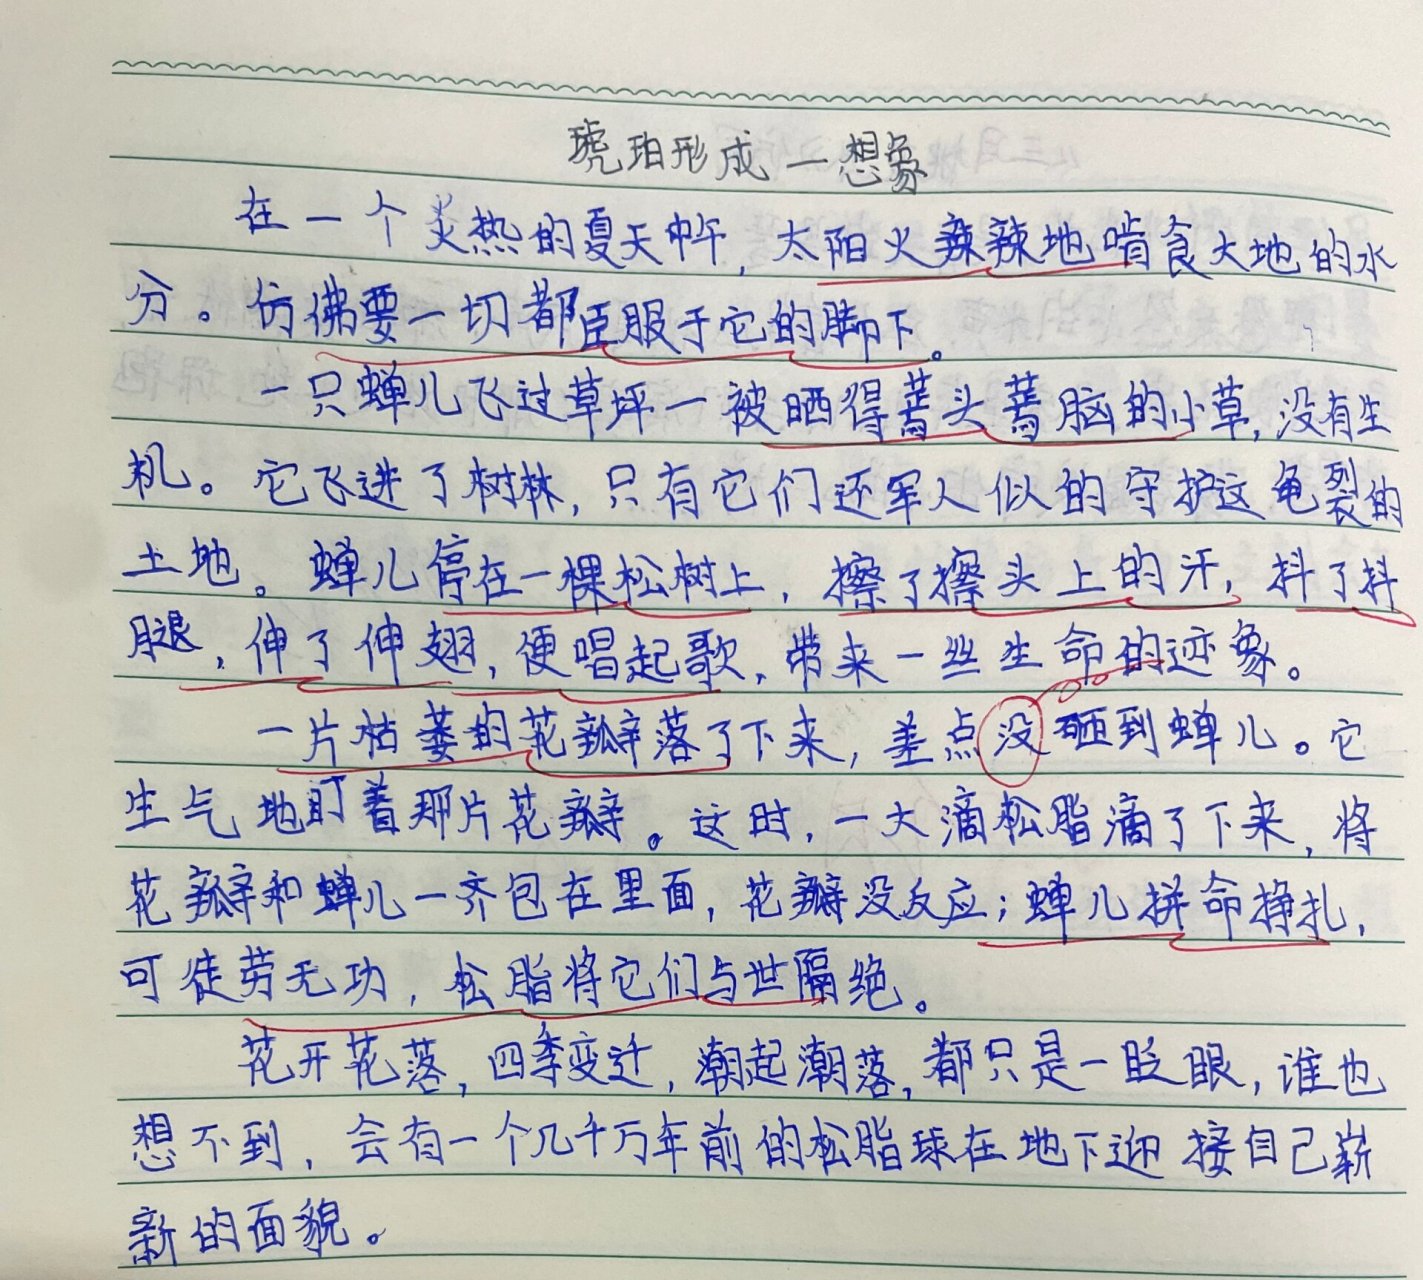 琥珀形成一想象
在一个炎热的夏天中午,太阳火辣辣地啃食大地的水
分。仿佛要一切都臣服于它的脚下。
一只蝉儿飞过草坪一被晒得蔫头蔫脑的小草,没有生
机。它飞进了树林,只有它们还军人似的守护这龟裂的
土地。蝉儿停在一棵松树上,擦了擦头上的汗,抖了抖
腿,伸了伸翅,便唱起歌,带来一丝生命的迹象。
一片枯萎的花瓣落了下来,差点没砸到蝉儿。它
生气地盯着那片花瓣。这时,一大滴松脂滴了下来,将
花瓣和蝉儿一齐包在里面,花瓣没反应;蝉儿拼命挣扎,
可徒劳无功,松脂将它们与世隔绝。
花开花落,四季变迁,潮起潮落,都只是一眨眼,谁也
想不到,会有一个几千万年前的松脂球在地下迎接自己崭
新的面貌。